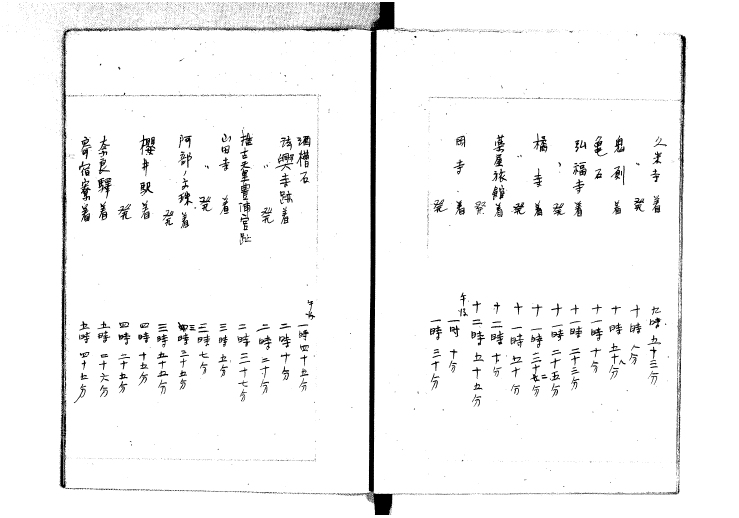 久米寺 着 九時 五十三分
〃 発 十時 八分
鬼剣 着 十時 五十八分
亀石 十一時 十分
弘福寺 着 十一時 二十三分
〃 発 十一時 二十五分
橘寺 着 十一時
〃 発 十一時 五十分
萬屋旅館 着 十二時 十分
発 十二時 五十五分
岡寺 着 午后 一時 十分
発 一時 三十分
酒槽石 午后 一時 四十五分
法興寺跡 着 二時 十分
〃 発 二時 二十分
推古天皇豊浦宮趾 二時 三十七分
山田寺 着 三時 五分
〃 発 三時 七分
阿部ノ文珠 着 三時 三十五分
発 三時 五十五分
櫻井駅 着 四時 十五分
発 四時 二十五分
奈良驛 着 五時 二十六分
寄宿寮 着 五時 四十五分